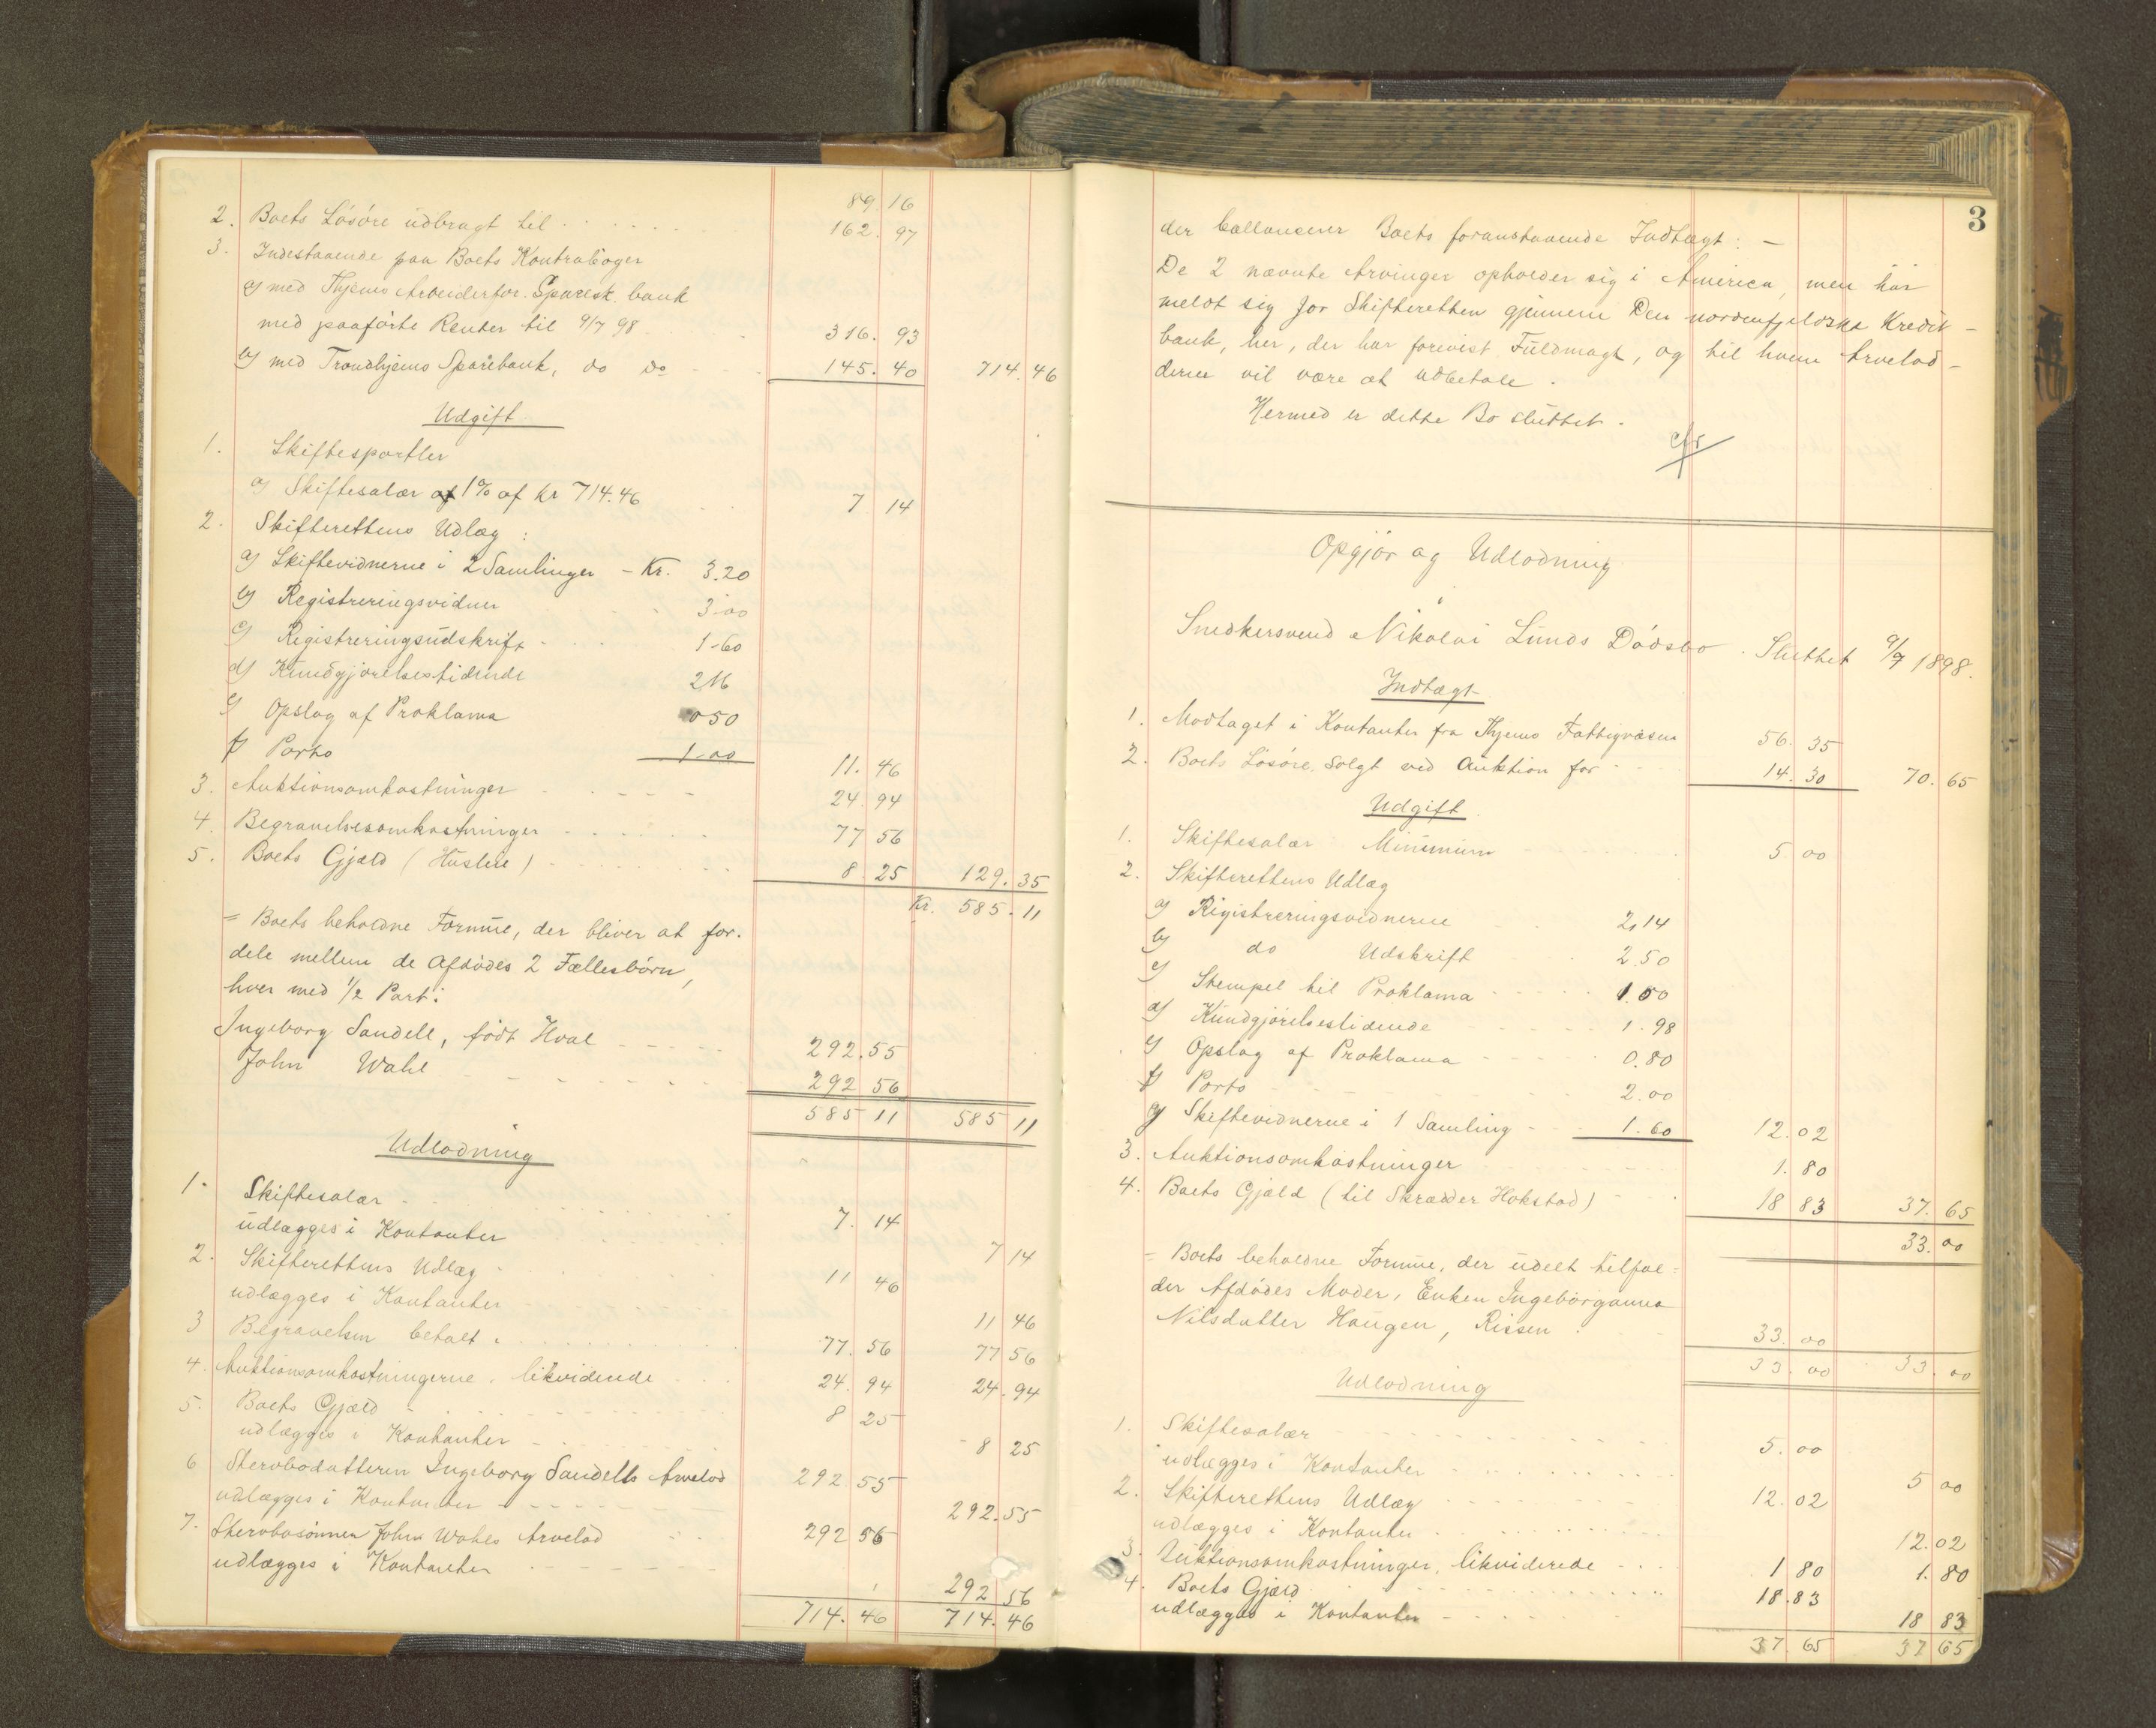 89.16
2. Boets Løsøre udbragt til 162.97
3. Indestaaende paa Boets Kontrabøger
a) med Thjems Arbeiderfor. Sparesk. bank
med paaførte Renter til 9/7 98 316.93
b) med Trondhjems Sparebank, do do 145.40 714.46
Udgift
1. Skiftesportler
a) Skiftesalær af 1% af kr 714.46 7 14
2. Skifterettens Udlæg:
a) Skiftevidnerne i 2 Samlinger - Kr. 3.20
b) Registreringsvidner 3.00
c) Registreringsudskrift 1.60
d) Kundgjørelsestidende 2.16
e) Opslag af Proklama 0 50
f) Porto 1.00 11.46
3. Auktionsomkostninger 24.94
4. Begravelsesomkostninger 77 56
5. Boets Gjæld (Husleie) 8.25 129.35
Kr. 585.11
= Boets beholdne Formue, der bliver at for-
dele mellem de Afdødes 2 Fællesbørn,
hver med 1/2 Part:
Ingeborg Sandell, født Hval 292.55
John Wahl 292 56
585 11 585 11
Udlodning
1. Skiftesalær 7.14
udlægges i Kontanter 7 14
2. Skifterettens Udlæg 11 46
udlægges i Kontanter 11 46
3 Begravelsen betalt 77.56 77 56
4. Auktionsomkostningerne, likviderede 24.94 24.94
5. Boets Gjæld 8 25
udlægges i Kontanter 8 25
6 Stervbodatteren Ingeborg Sandells Arvelod 292 55
udlægges i Kontanter 292.55
7. Stervbosønnen John Wahls Arvelod 292 56
udlægges i Kontanter 292 56
714.46 714.46
3
der ballancerer Boets foranstaaende Indtægt: -
De 2 nævnte Arvinger opholder sig i America, men har
meldt sig for Skifteretten gjennem Den nordenfjeldske Kredit-
bank, her, der har forevist Fuldmagt, og til hvem Arvelod-
derne vil være at udbetale.
Hermed er dette Bo sluttet.
cfr
Opgjør og Udlodning
i
Snedkersvend Nikolai Lunds Dødsbo. Sluttet 9/7 1898.
Indtægt
1. Modtaget i Kontanter fra Thjems Fattigvæsen 56.35
2. Boets Løsøre, solgt ved Auktion for 14.30 70.65
Udgift
1. Skiftesalær Minimum 5 00
2. Skifterettens Udlæg
a) Registreringsvidnerne 2,14
b) do Udskrift 2.50
c) Stempel til Proklama 1.00
d) Kundgjørelsestidende 1.98
e) Opslag af Proklama 0.80
f) Porto 2.00
g) Skiftevidnerne i 1 Samling 1.60 12.02
3. Auktionsomkostninger 1.80
4. Boets Gjæld (til Skrædder Hokstad) 18 83 37.65
33.00
= Boets beholdne Formue, der udelt tilfal-
der Afdødes Moder, Enken Ingeborganna
Nilsdatter Haugen, Rissen 33.00
33.00 33.00
Udlodning
1. Skiftesalær 5.00
udlægges i Kontanter 5 00
2. Skifterettens Udlæg 12.02
udlægges i Kontanter 12.02
3. Auktionsomkostninger, likviderede 1 80 1.80
4. Boets Gjæld 18.83
udlægges i Kontanter 18 83
37.65 37 65